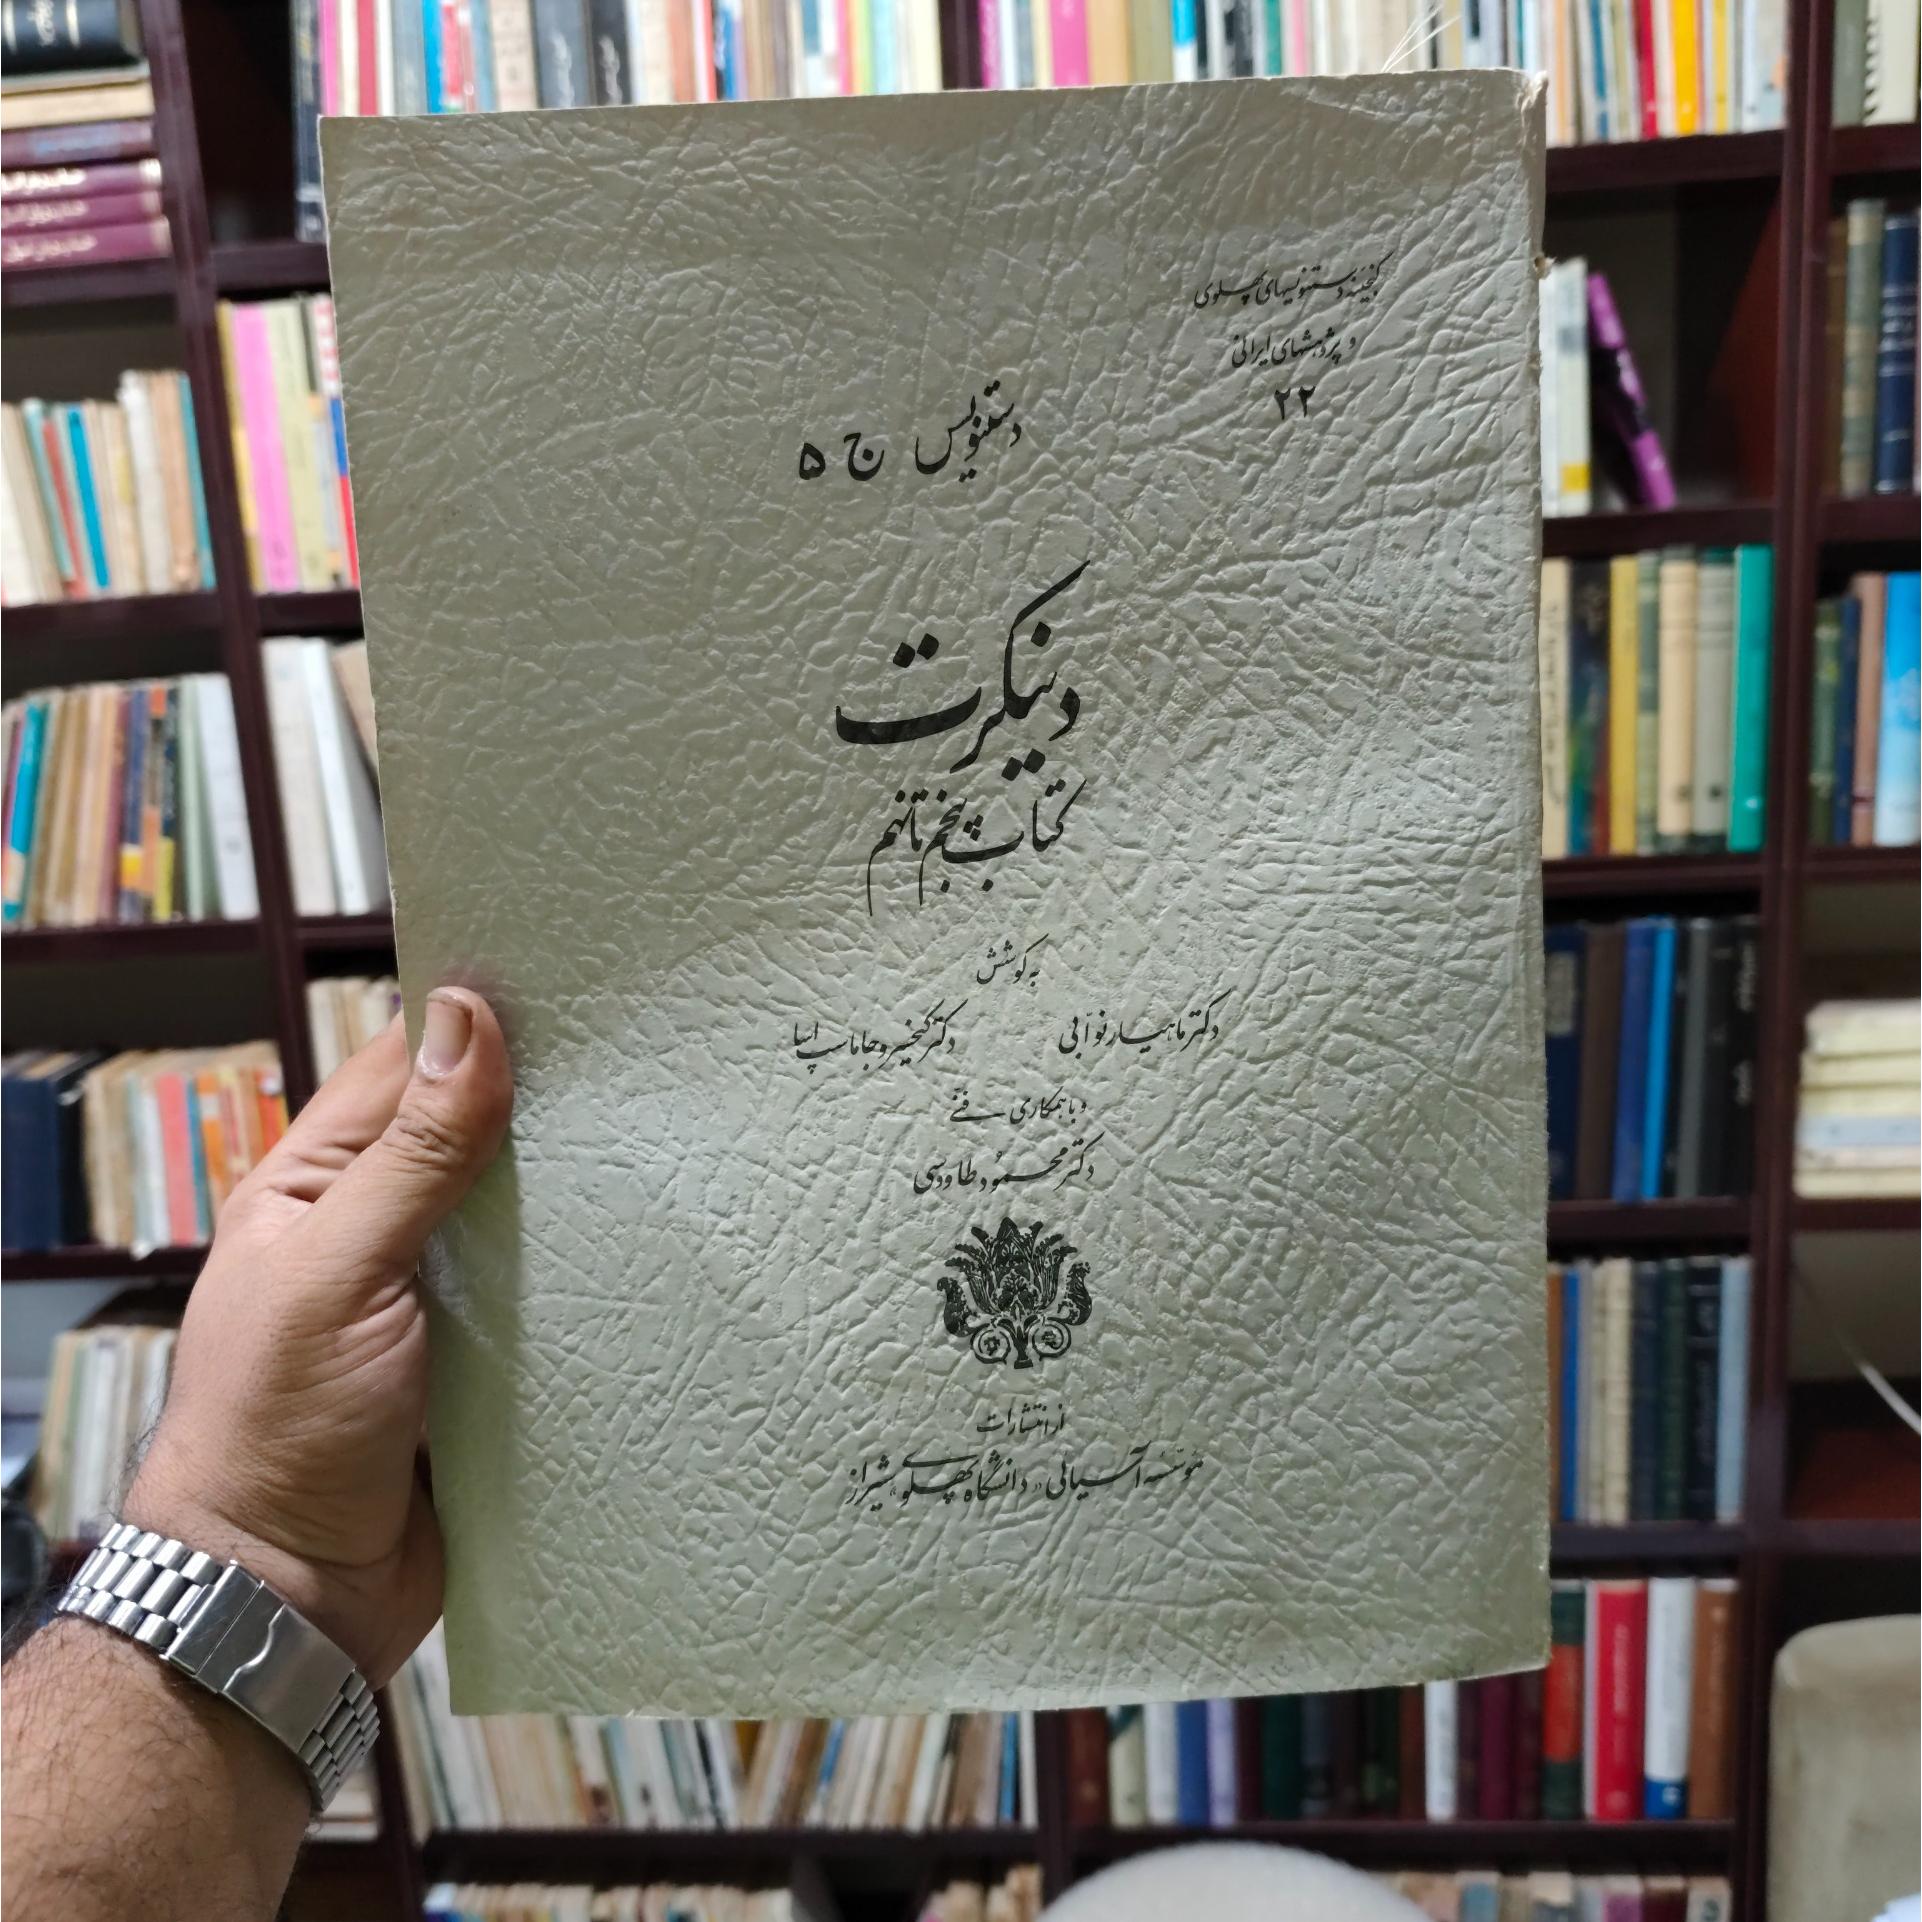 گنجینهٔ دستنویسهای پهلوی
و پژوهشهای ایرانی
۲۲
دستنویس ج ۵
دینکرت
کتاب پنجم تا نهم
به کوشش
دکتر ماهیار نوّابی دکتر کیخسرو جاماسپ اسا
و با همکاری فنّی
دکتر محمود طاووسی
از انتشارات
مؤسّسهٔ آسیائی «دانشگاه پهلوی» شیراز